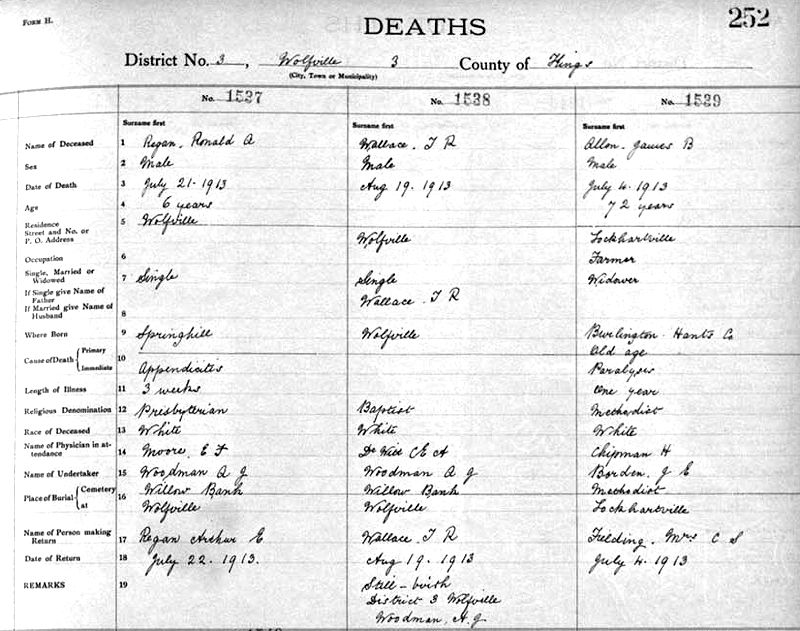 FORM H.
252
DEATHS
District No. 3, Wolfville 3 County of Kings
(City, Town or Municipality)
No. 1537 No. 1538 No. 1539
Surname first Surname first Surname first
Name of Deceased 1 Regan, Ronald A Wallace, T R Allen, James B
Sex 2 Male Male Male
Date of Death 3 July 21-1913 Aug 19. 1913 July 4. 1913
Age 4 6 years 72 years
Residence Street and No. or P. O. Address 5 Wolfville Wolfville Lockhartville
Occupation 6 Farmer
Single, Married or Widowed 7 Single Single Widower
If Single give Name of Father
If Married give Name of Husband 8 Wallace. T R
Where Born 9 Springhill Wolfville Burlington Hants Co
Cause of Death Primary 10 Old age
Immediate Appendicitis Paralysis
Length of Illness 11 3 weeks One year
Religious Denomination 12 Presbyterian Baptist Methodist
Race of Deceased 13 White White White
Name of Physician in attendance 14 Moore, E F De Witt C E A Chipman H
Name of Undertaker 15 Woodman A J Woodman A J Borden, J E
Place of Burial Cemetery 16 Willow Bank Willow Bank Methodist
at Wolfville Wolfville Lockhartville
Name of Person making Return 17 Regan Arthur E Wallace. T R Fielding, Mrs C S
Date of Return 18 July 22. 1913. Aug 19. 1913 July 4. 1913
REMARKS 19 Still-birth
District 3 Wolfville
Woodman, A. J